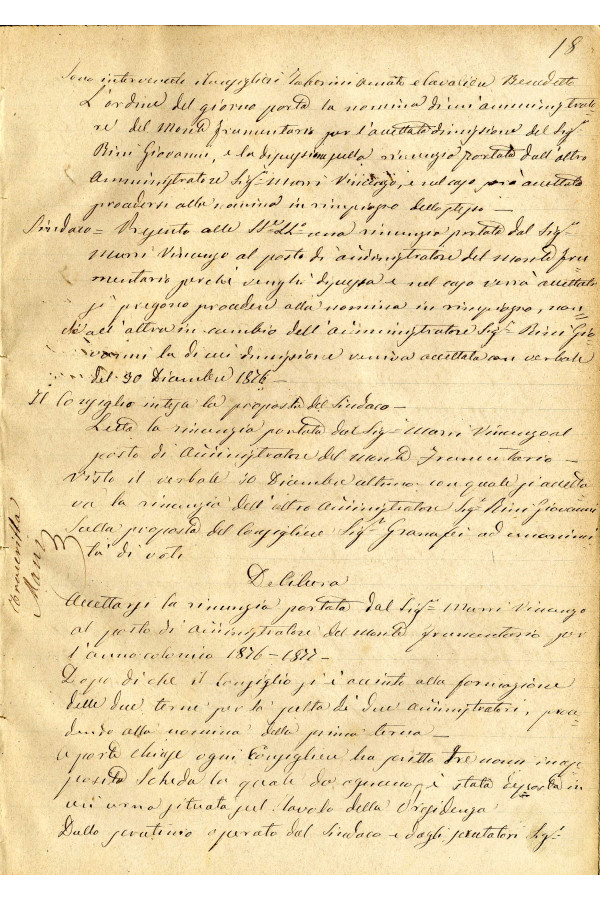 18
Sono intervenuti i Consiglieri Zaherini Amato e Cavaliere Benedetto
L'ordine del giorno porta la nomina di un amministrato-
re del Monte frumentario per l'accettata dimissione del Sigr
Bini Giovanni, e la discussione sulla rinunzia portata dall'altro
Amministratore Sigr Murri Vincenzo, e nel caso sarà accettata
procedersi alla nomina in rimpiazzo dello stesso —
Sindaco = Presento alle SS.rie LL.me una rinunzia portata dal Sigr
Murri Vincenzo al posto di amministratore del Monte fru=
mentario perché venghi discussa e nel caso verrà accettata
si pregono procedere alla nomina in rimpiazzo, non=
ché all'altra in cambio dell'amministratore Sigr Bini Gio=
vanni la di cui dimissione veniva accettata con verbale
del 30 Dicembre 1876 —
Il Consiglio intesa la proposta del Sindaco —
Letta la rinunzia portata dal Sigr Murri Vincenzo al
posto di amministratore del Monte Frumentario —
Visto il verbale 30 Dicembre ultimo con quale si accetta
va la rinunzia dell'altro amministratore Sigr Bini Giovanni
Sulla proposta del Consigliere Sigr Granafei ad unanimi
tà di voti
Delibera
Accettarsi la rinunzia portata dal Sigr Murri Vincenzo
al posto di amministratore del Monte frumentario per
l'anno colonico 1876-1877 —
Dopo di che il Consiglio si è accinto alla formazione
delle due terne per la scelta di due amministratori, proce
dendo alla nomina della prima terna —
a porte chiuse ogni Consigliere ha scritto tre nomi in ap
posita scheda la quale da ognuno è stata deposta in
un urna situata sul tavolo della Presidenza
Dallo scrutinio operato dal Sindaco e dagli scrutatori Sigr